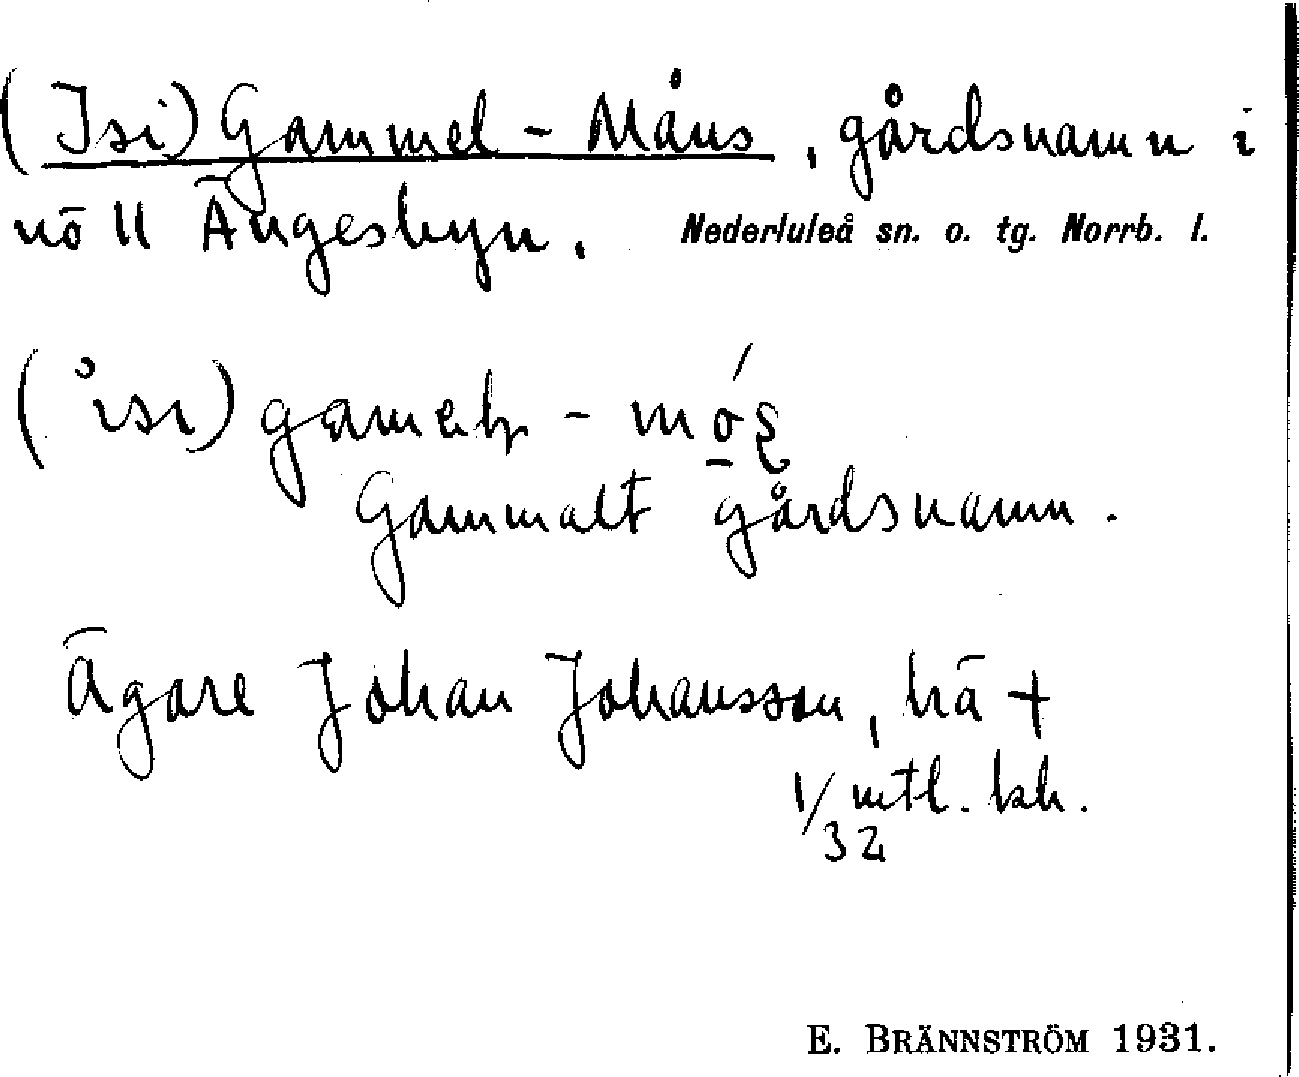 (Isi) Gammel-Måns, gårdsnamn i
nö 11 Ängesbyn. Nederluleå sn. o. tg. Norrb. l.
Gammalt gårdsnamn.
Ägare Johan Johansson, hä +
1/32 mtl. kh.
E. BRÄNNSTRÖM 1931.